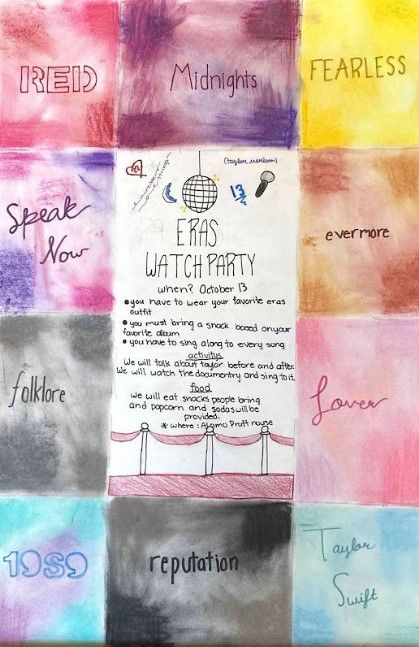 RED
Midnights
FEARLESS
Speak
Now
(taylor version)
13
ERAS
WATCH PARTY
when? October 13
• you have to wear your favorite eras
outfit
• you must bring a snack based on your
favorite album
• you have to sing along to every song
activitys
We will talk about taylor before and after.
We will watch the documentry and sing to it.
food
we will eat snacks people bring
and popcorn and sodas will be
provided.
* where: Alamo Draft house
evermore
folklore
Lover
1989
reputation
Taylor
Swift